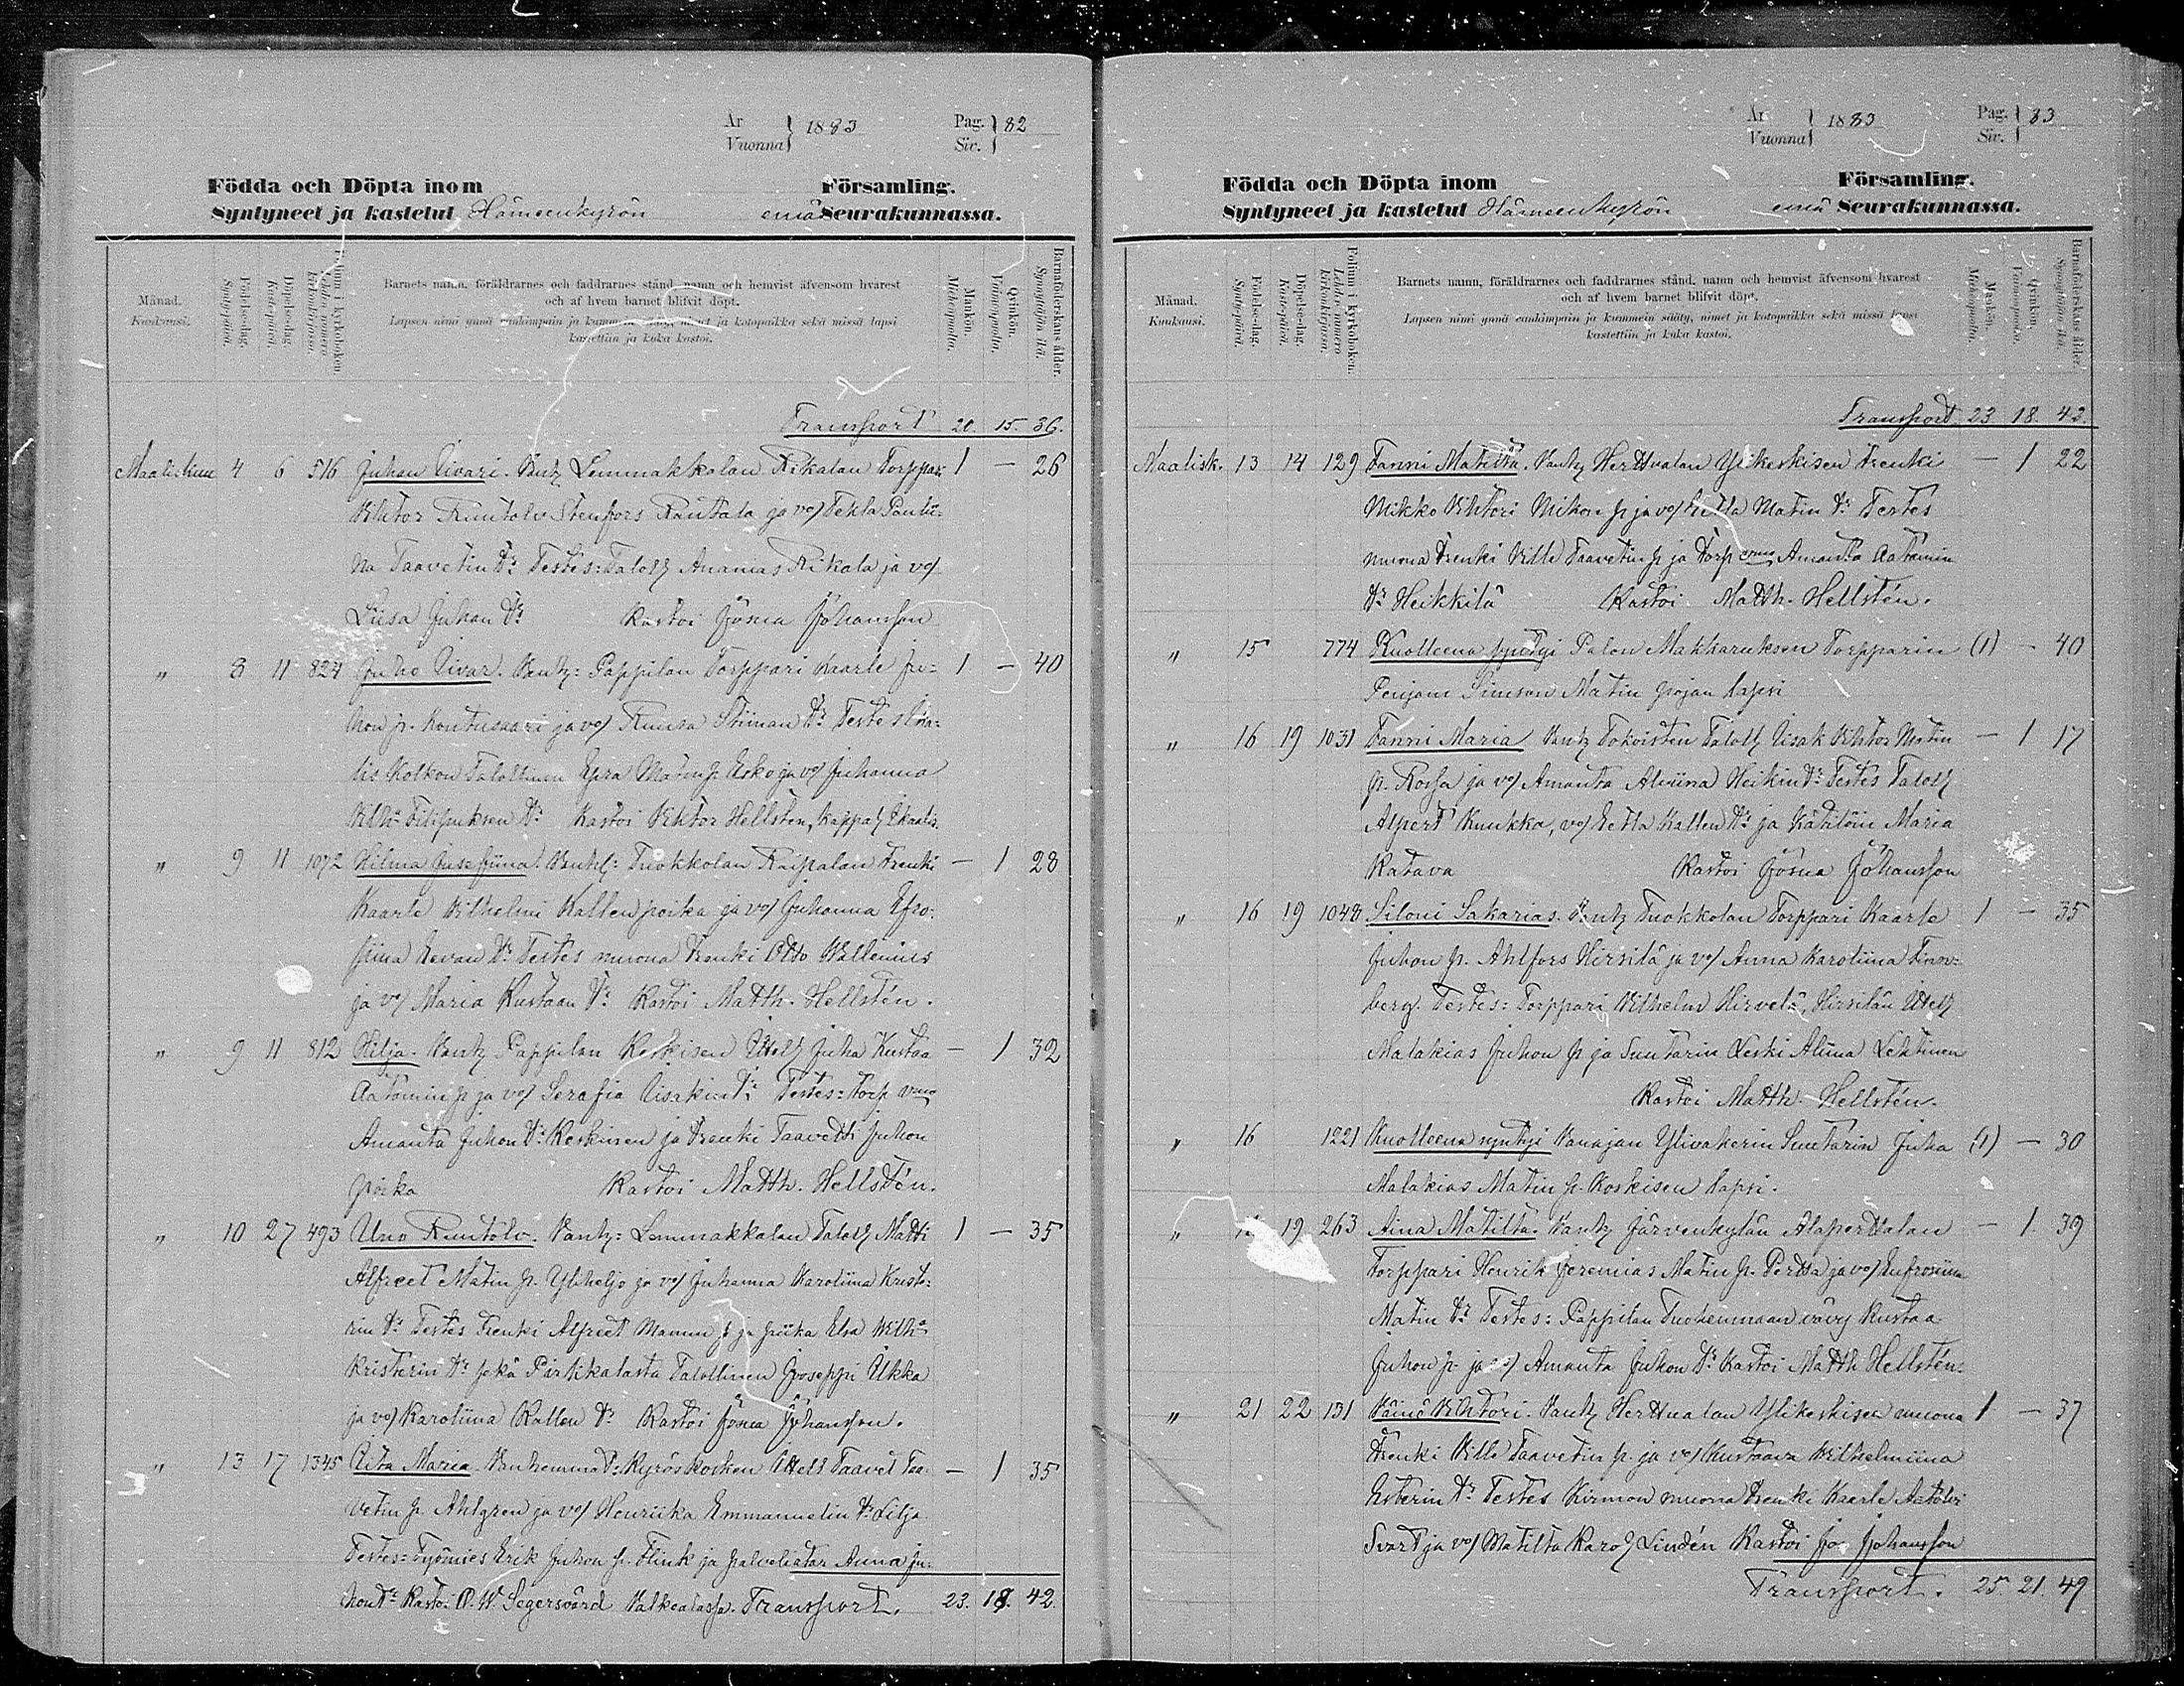 År Vuonna 1883 Pag. Siv. 82
Födda och Döpta inom Församling.
Syntyneet ja kastetut Hämeenkyrön emä Seurakunnassa.
Månad. Kuukausi.
Födelse-dag. Syntypäivä.
Döpelse-dag. Kaste-päivä.
Folium i kyrkoboken. Lehden numero kirkonkirjassa.
Barnets namn, föräldrarnes och faddrarnes stånd, namn och hemvist äfvensom hvarest
och af hvem barnet blifvit döpt.
Lapsen nimi ynnä vanhimpain ja kummein sääty, nimet ja kotopaikka sekä missä lapsi
kastettiin ja kuka kastoi.
Mankön. Miehenpuolia.
Qvinkön. Vaimonpuolia.
Barnaföderskans ålder. Synnyttäjän ikä.
Transport 20. 15. 36.
Maaliskuu 4 6 516 Juhan Iivari. Vanh Lemmakkalan Rikalan Torppar: 1 — 26
Vihtor Ruutolv Stenfors Rautala ja vo/ Tekla Pauli-
na Taavetin tr Testes: Taloll Ananias Rikala ja vo/
Liisa Juhan tr Kastoi Josua Johansson
" 8 11 824 Juho Iivar. Vanh: Pappilan Torppari Kaarle Ju- 1 — 40
hon p. Kontusaari ja vo/ Ruusa Stiinan tr Testes
lis Kolkon Talollinen Esra Matin p. Esko ja vo/ Juhanna
Vilh: Filipuksen tr Kastoi Viktor Hellsten, Kappal Ikalis.
" 9 11 1072 Hilma Josefiina. Vanh: Tuokkolan Raipalan Trenki — 1 28
Kaarle Vilhelmi Kallen poika ja vo/ Juhanna Efro-
siina Eevan tr Testes muona trenki Otto Wallenius
ja vo/ Maria Kustaan tr Kastoi Matth. Hellstén.
" 9 11 812 Hilja. Vanh Pappilan Koskisen Itsell Juha Kustaa — 1 32
Aatamin p ja vo/ Serafia Iisakin tr Testes: torp vmo
Amanta Juhon tr Koskinen ja trenki Taavetti Juhon
poika Kastoi Matth. Hellstén.
" 10 27 493 Uno Ruutolv. Vanh: Lemmakkalan Taloll Matti 1 — 35
Alfreet Matin p. Yliheljo ja vo/ Juhanna Karoliina Krist-
rin tr Testes Trenki Alfreet Mannu p ja piika Elsa Wilh:
Kristerin tr sekä Pirkkalasta Talollinen Jooseppi Ukka
ja vo/ Karoliina Kallen tr Kastoi Josua Johansson.
" 13 17 1345 Aita Maria. Vanhemmat: Kyröskosken Itsell Taavet Taa- — 1 35
vetin p. Ahlgren ja vo/ Henriika Emmanuelin tr Lilja
Testes: Työmies Erik Juhon p. Flink ja palveliatar Anna Ju-
hon tr Kasto. O. W. Segersvärd Valkealassa. Transport. 23. 18. 42.
År Vuonna 1883 Pag. Siv. 83
Födda och Döpta inom Församling.
Syntyneet ja kastetut Hämeenkyrön emä Seurakunnassa.
Månad. Kuukausi.
Födelse-dag. Syntypäivä.
Döpelse-dag. Kaste-päivä.
Folium i kyrkoboken. Lehden numero kirkonkirjassa.
Barnets namn, föräldrarnes och faddrarnes stånd, namn och hemvist äfvensom hvarest
och af hvem barnet blifvit döpt.
Lapsen nimi ynnä vanhimpain ja kummein sääty, nimet ja kotopaikka sekä missä lapsi
kastettiin ja kuka kastoi.
Mankön. Miehenpuolia.
Qvinkön. Vaimonpuolia.
Barnaföderskans ålder. Synnyttäjän ikä.
Transport 23 18. 42.
Maalisk. 13 14 129 Fanni Matilta. Vanh Herttualan Ylikeskisen trenki — 1 22
Mikko Vihtori Mikon p ja vo/ Eetla Matin tr Testes
muona trenki Ville Taavetin p ja Torp vmo Amanta Aatamin
tr Heikkilä Kastoi Matth. Hellstén.
" 15 774 Kuolleena syntyi Palon Makkaruksen Torpparin (1) — 40
Penjam Simson Matin pojan lapsi
" 16 19 1031 Fanni Maria Vanh Tokoisten Taloll Iisak Vihtor Matin — 1 17
p. Rossa ja vo/ Amanta Alviina Heikin tr Testes Taloll
Alpert Kuukka, vo/ Eetla Kallen tr ja Kätilöin Maria
Katava Kastoi Josua Johansson
" 16 19 1048 Siloni Sakarias. Vanh Tuokkolan Torppari Kaarle 1 — 35
Juhon p. Ahlfors Hirsilä ja vo/ Anna Karoliina
berg. Testes: Torppari Vilhelm Hirvelä, Hirsilän Itsell
Malakias Juhon p ja Suutarin Leski Aliina Lehtinen
Kastoi Matth. Hellstén.
" 16 1221 Kuolleena syntyi Vanajan Ylivakerin Suutarin Juha (1) — 30
Malakias Matin p. Koskisen lapsi.
" 19 263 Aina Matilta. Vanh Järvenkylän Alaperttalan — 1 39
Torppari Henrik Jeremias Matin p. Pertta ja vo/ Eufrosiina
Matin tr Testes: Pappilan Tuohenmaan vävy Kustaa
Juhon p. ja vo/ Amanta Juhon tr Kastoi Matth Hellstén.
" 21 22 131 Väinö Vihtori. Vanh Herttualan Ylikeskisen muona 1 — 37
trenki Ville Taavetin p. ja vo/ Kustaava Vilhelmiina
Esterin tr Testes Kirmon muona trenki Kaarle Aatolvi
Svart ja vo/ Matilta Karol Lindén Kastoi Jos Johansson
Transport. 25. 21. 49